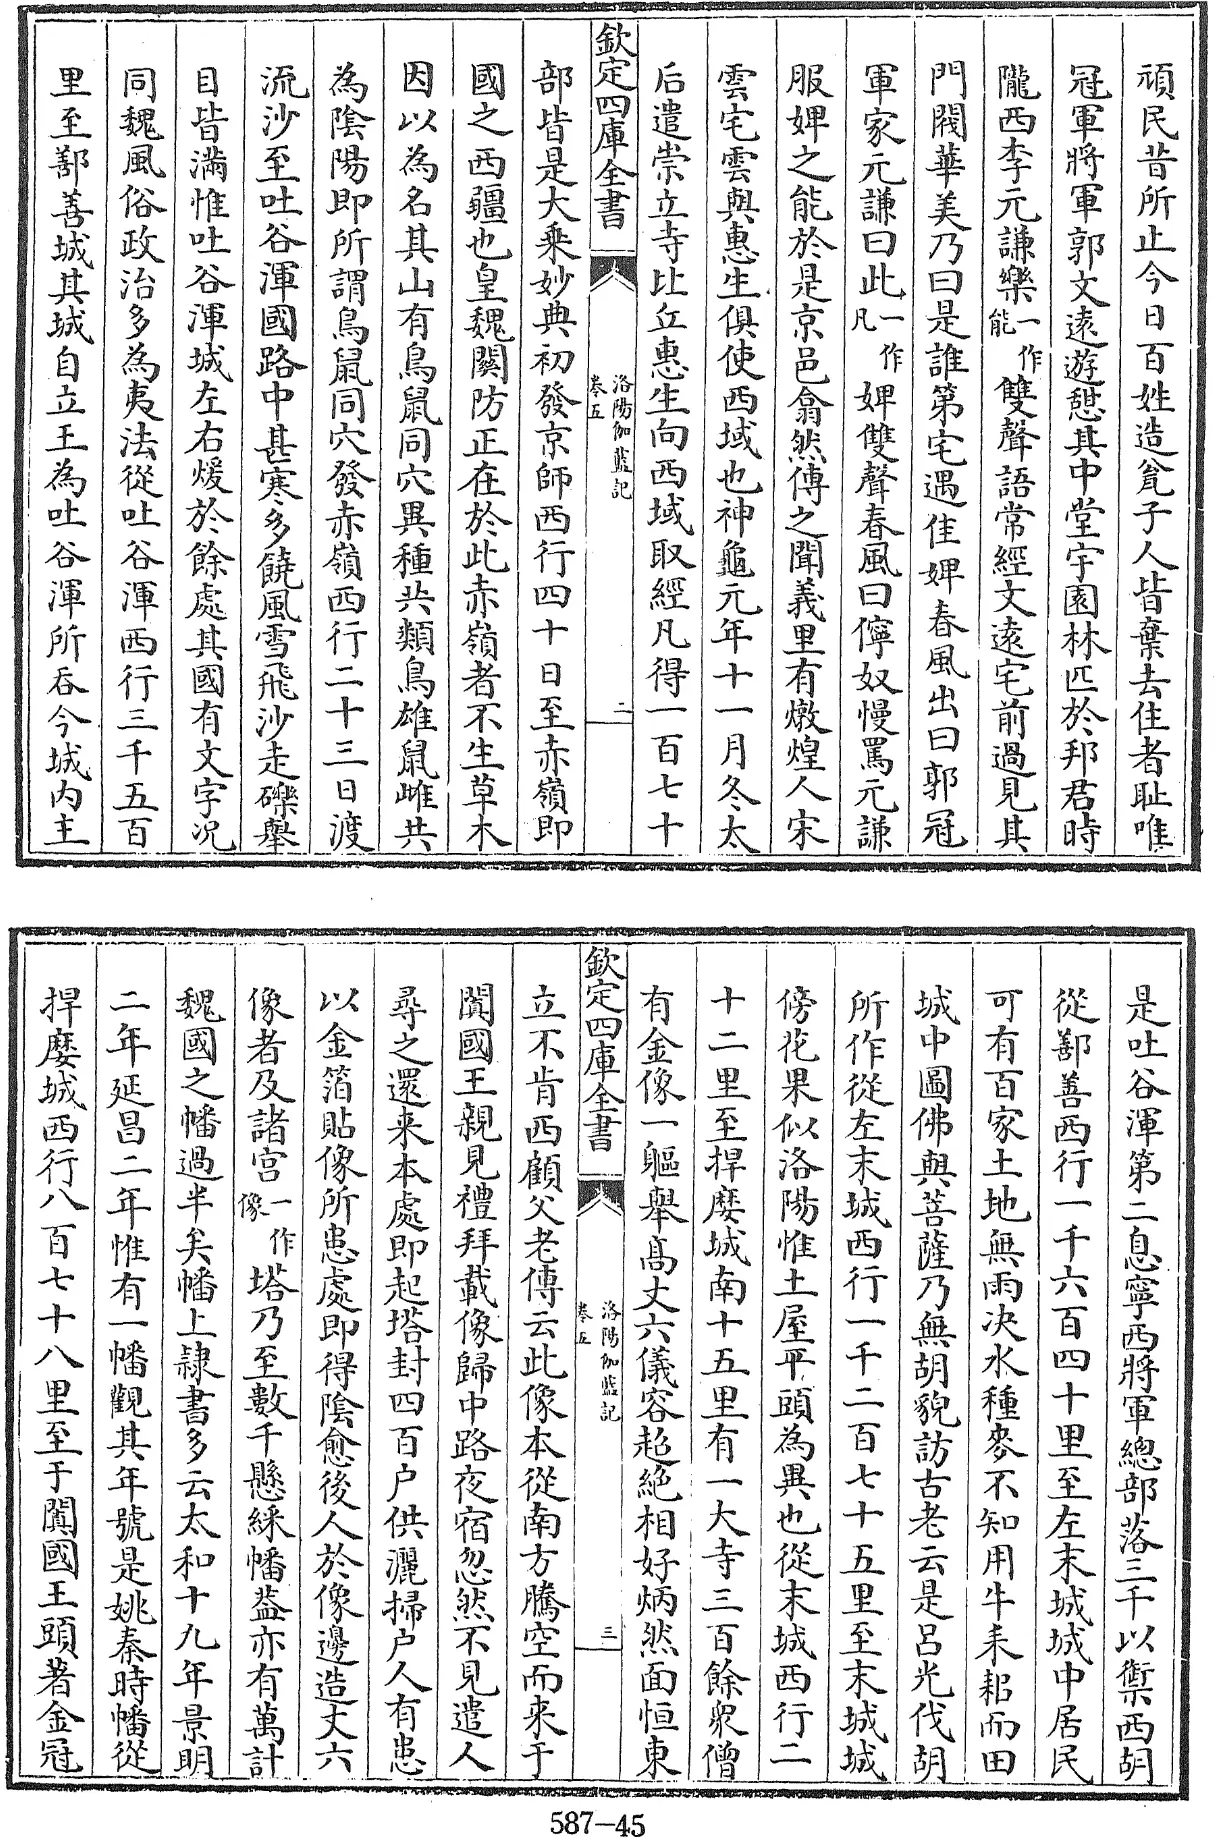 頑民昔所止今日百姓造甕子人皆棄去住者耻唯
冠軍將軍郭文遠遊憇其中堂宇園林匹於邦君時
隴西李元謙樂一作能雙聲語常經文遠宅前過見其
門閥華美乃曰是誰第宅遇佳婢春風出曰郭冠
軍家元謙曰此一作凡婢雙聲春風曰儜奴慢罵元謙
服婢之能於是京邑翕然傳之聞義里有燉煌人宋
雲宅雲與惠生俱使西域也神龜元年十一月冬太
后遣崇立寺比丘惠生向西域取經凡得一百七十
欽定四庫全書
洛陽伽藍記
卷五
二
部皆是大乘妙典初發京師西行四十日至赤嶺即
國之西疆也皇魏關防正在於此赤嶺者不生草木
因以為名其山有鳥鼠同穴異種共類鳥雄鼠雌共
為陰陽即所謂鳥鼠同穴發赤嶺西行二十三日渡
流沙至吐谷渾國路中甚寒多饒風雪飛沙走礫舉
目皆滿惟吐谷渾城左右煖於餘處其國有文字況
同魏風俗政治多為夷法從吐谷渾西行三千五百
里至鄯善城其城自立王為吐谷渾所吞今城内主
是吐谷渾第二息寧西將軍總部落三千以禦西胡
從鄯善西行一千六百四十里至左末城城中居民
可有百家土地無雨决水種麥不知用牛耒耜而田
城中圖佛與菩薩乃無胡貌訪古老云是呂光伐胡
所作從左末城西行一千二百七十五里至末城城
傍花果似洛陽惟土屋平頭為異也從末城西行二
十二里至捍𡡉城南十五里有一大寺三百餘衆僧
有金像一軀舉高丈六儀容超絶相好炳然面恒東
欽定四庫全書
洛陽伽藍記
卷五
三
立不肯西顧父老傳云此像本從南方騰空而来于
闐國王親見禮拜載像歸中路夜宿忽然不見遣人
尋之還来本處即起塔封四百户供灑掃户人有患
以金箔貼像所患處即得陰愈後人於像邊造丈六
像者及諸宫一作像塔乃至數千懸綵幡葢亦有萬計
魏國之幡過半矣幡上隷書多云太和十九年景明
二年延昌二年惟有一幡觀其年號是姚秦時幡從
捍𡡉城西行八百七十八里至于闐國王頭著金冠
587-45